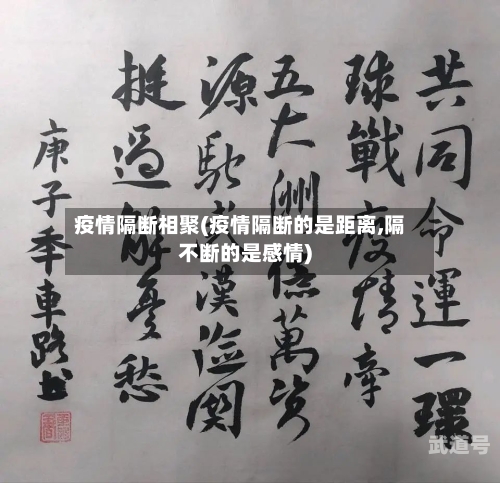 共同命運一環
球戰疫情牽
五大洲億萬資
源馳武漢險関
挺過解憂愁
庚子秊車路书
疫情隔断相聚(疫情隔断的是距离,隔
不断的是感情)
武道号